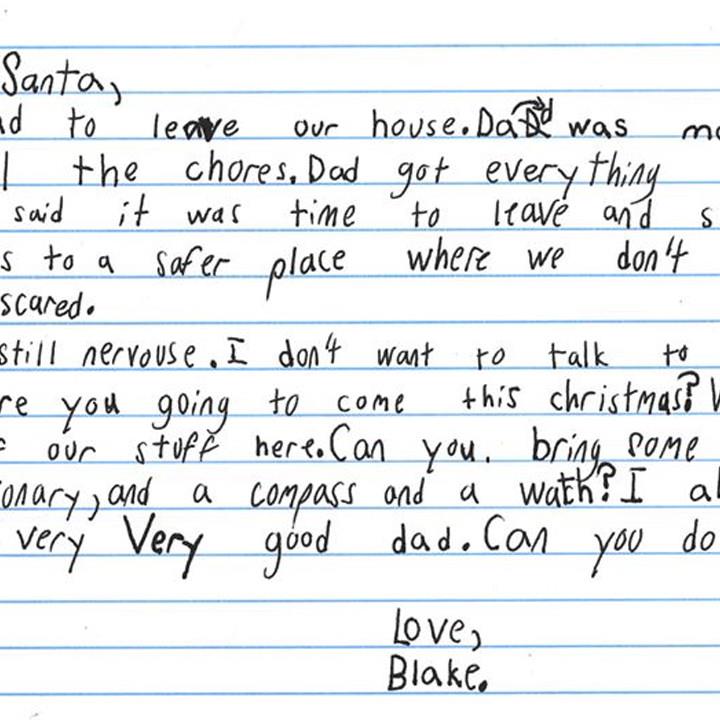 Santa,
ad to leave our house. Dad was ma
l the chores. Dad got everything
said it was time to leave and s
s to a safer place where we don't
scared.
still nervouse. I don't want to talk to
re you going to come this christmas? W
f our stuff here. Can you. bring some
onary, and a compass and a wath? I al
very Very good dad. Can you do
Love,
Blake.